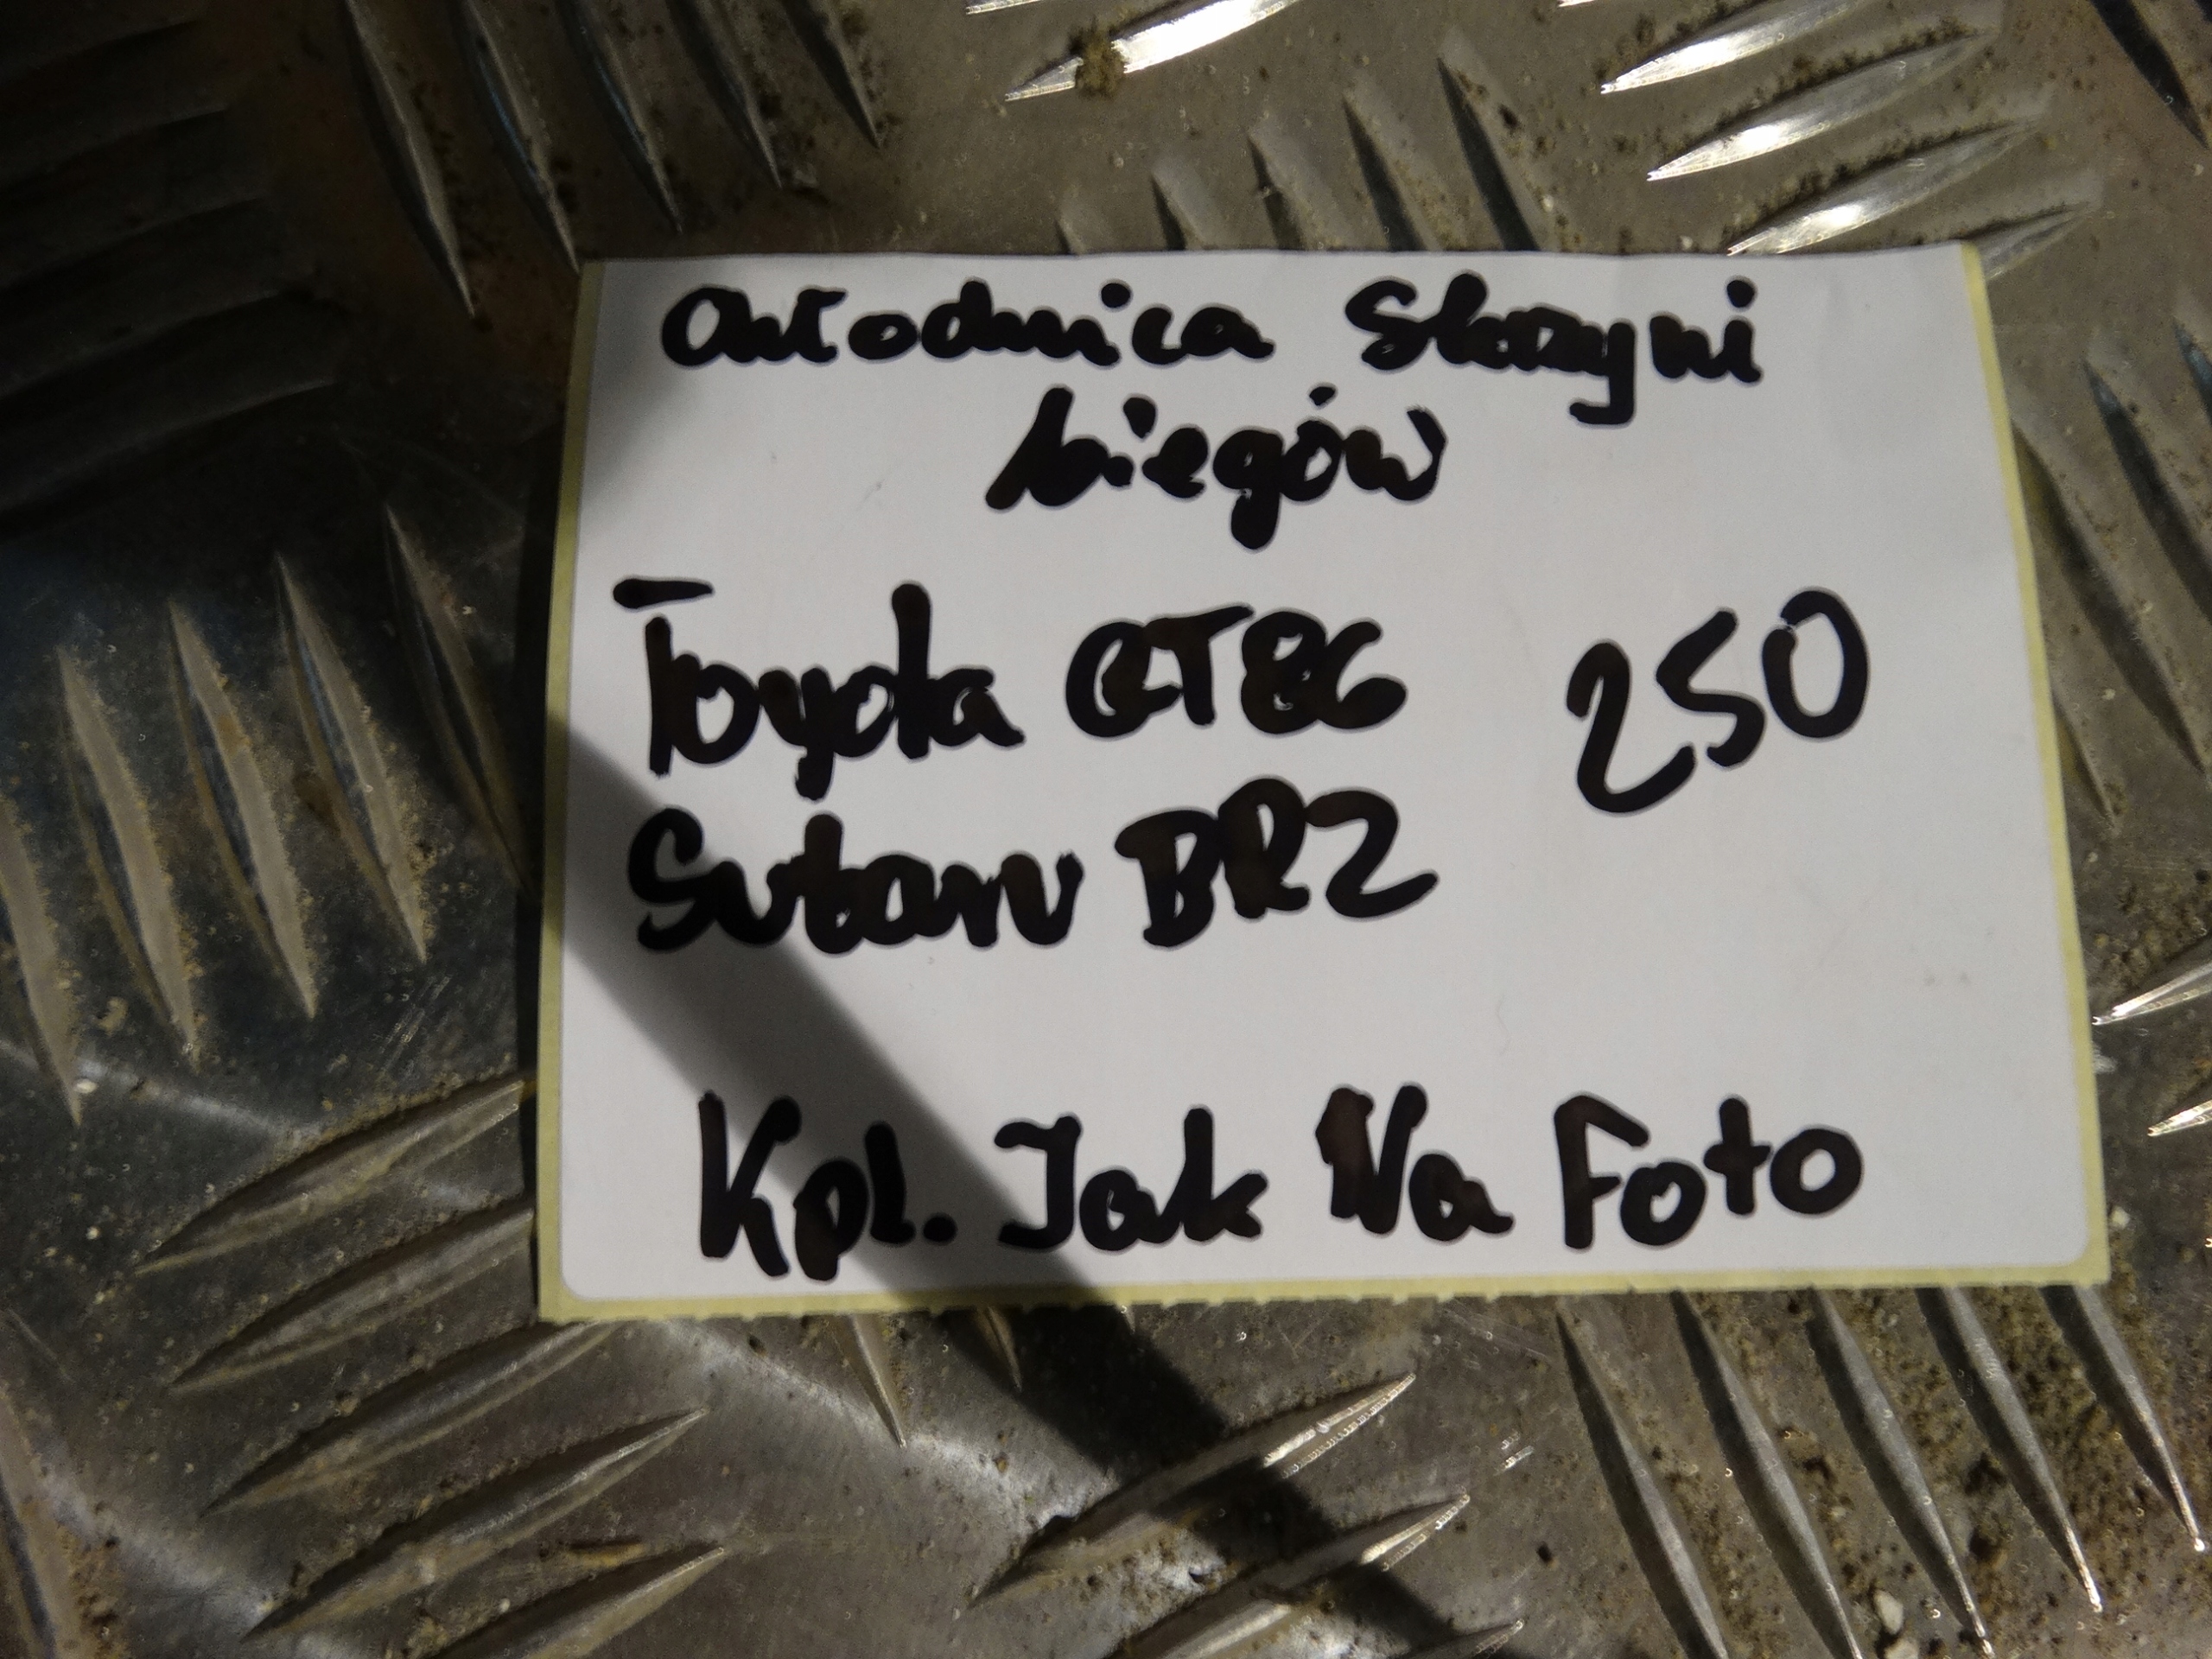 Chłodnica Skrzyni
biegów
Toyota GT86 250
Subaru BRZ
Kpl. Jak Na Foto